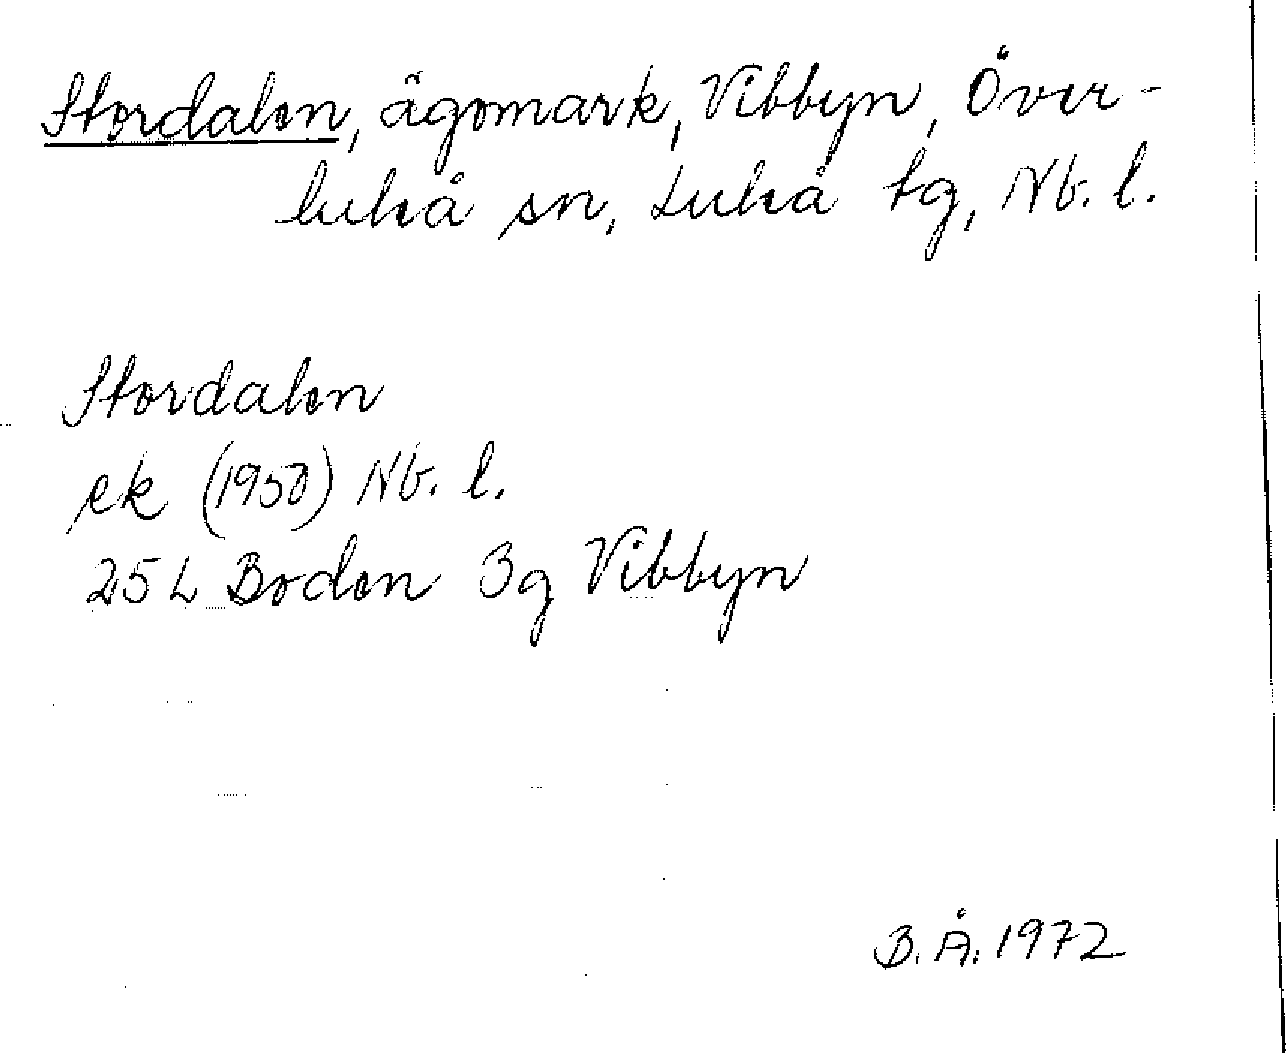 Stordalen, ägomark, Vibbyn, Över-
luleå sn, Luleå tg, Nb. l.
Stordalen
ek (1950) Nb. l.
25 L Boden 3g Vibbyn
B. Å. 1972